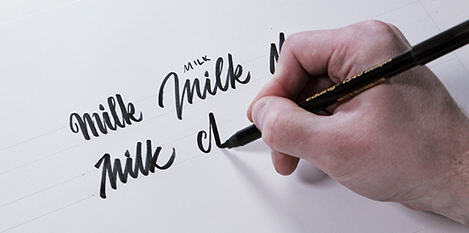 MILK
Milk Milk
Milk